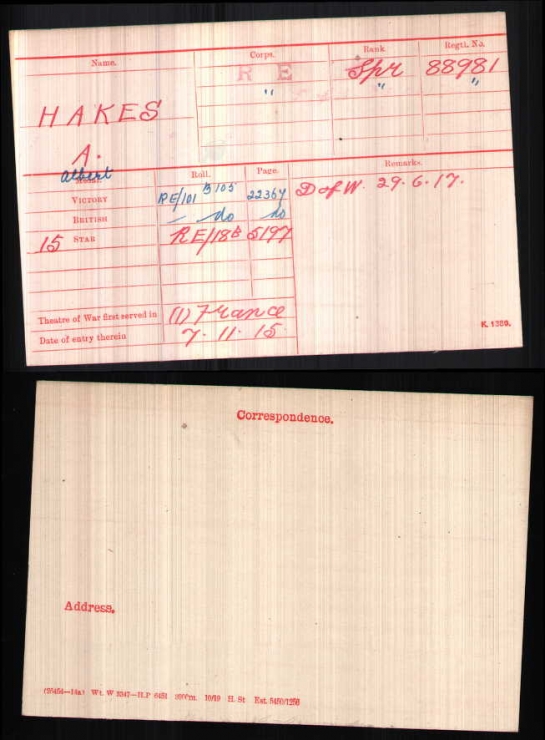 Name. Corps. Rank. Regtl. No.
HAKES R E Spr 88981
" " "
A.
Albert
Medal. Roll. Page. Remarks.
VICTORY RE/101 B105 22364 D of W. 29.6.17.
BRITISH do do
15 STAR RE/18B 5197
Theatre of War first served in (1) France
Date of entry therein 7.11.15
K. 1380.
Correspondence.
Address.
H.P 10/19 H. St